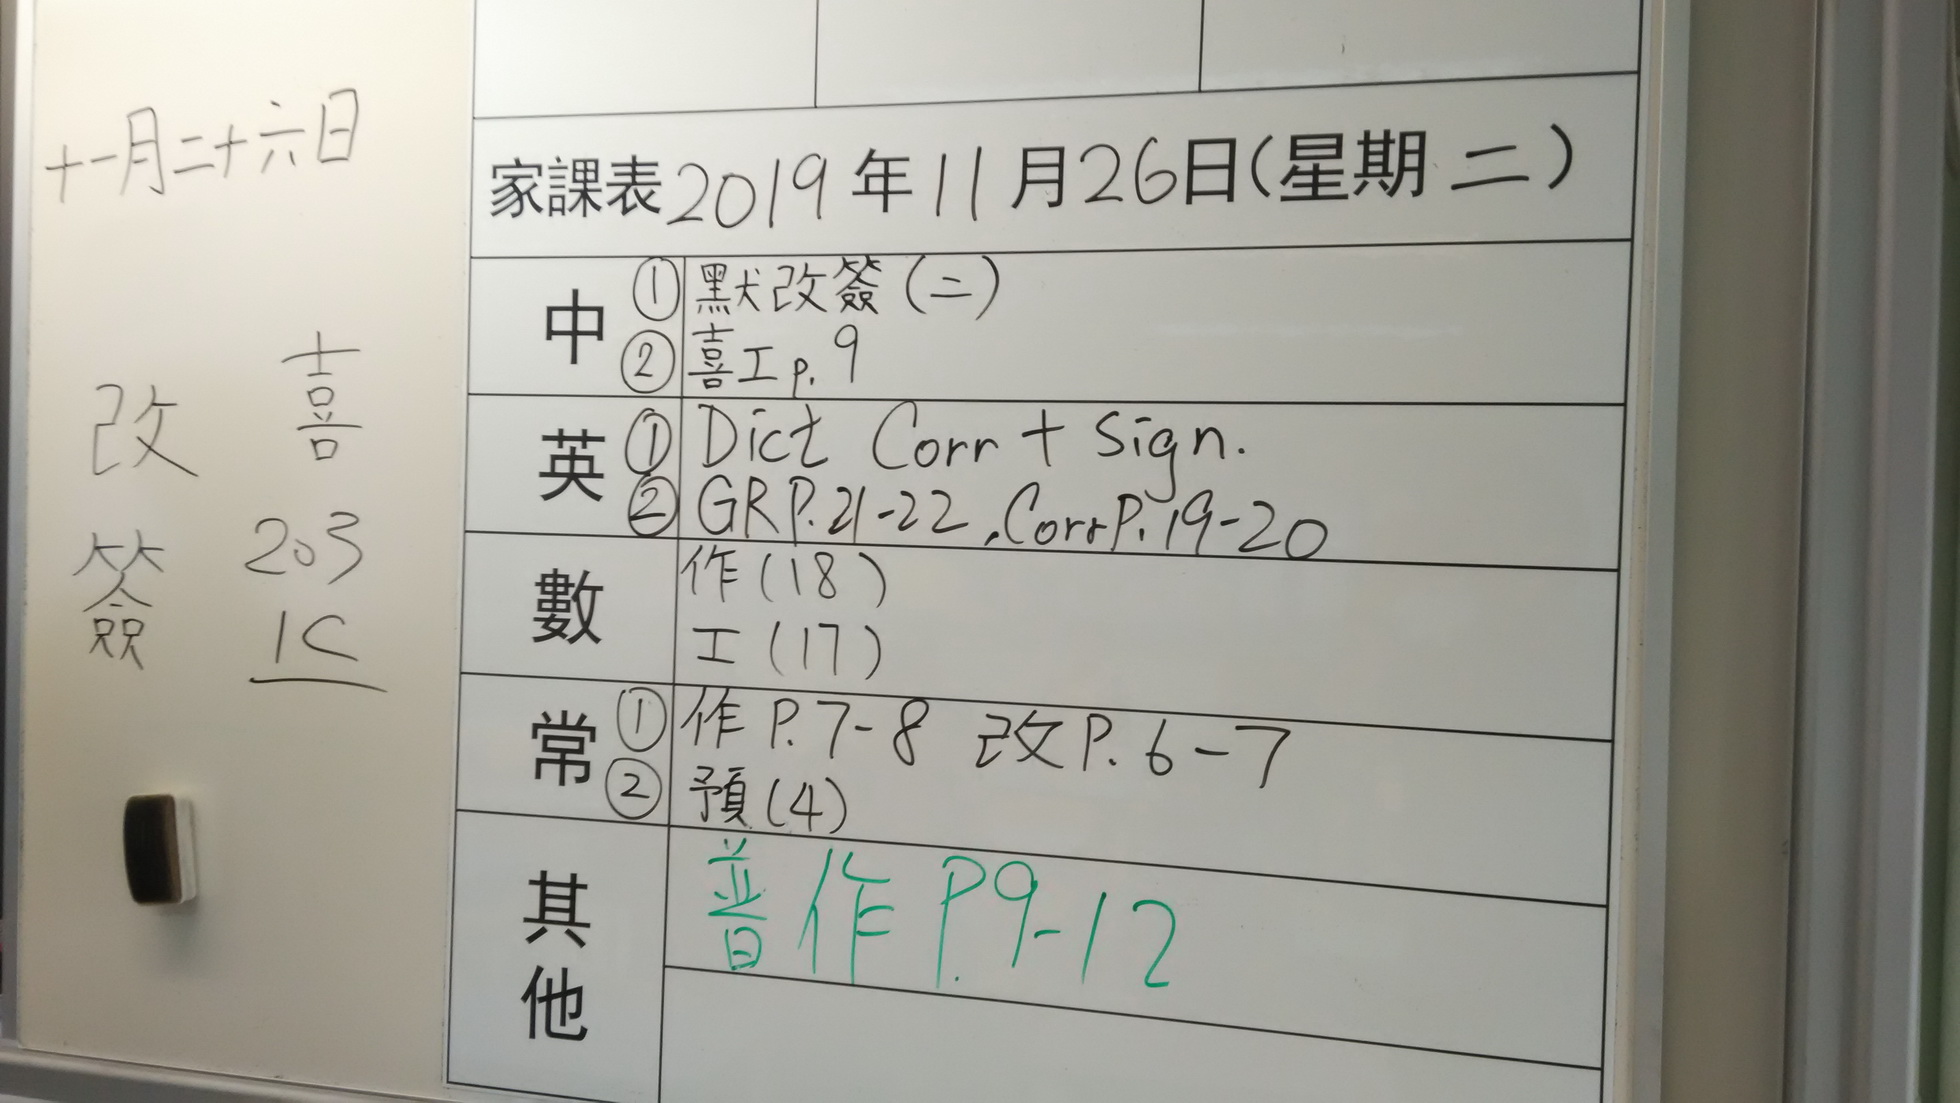 十一月二十六日
喜
203
1C
改
簽
家課表2019年11月26日(星期二)
中 ① 默改簽(二)
② 喜工p.9
英 ① Dict Corr + Sign.
② GR P.21-22, Corr P.19-20
數 作(18)
工(17)
常 ① 作 P.7-8 改 P.6-7
② 預(4)
其他 普作 P.9-12